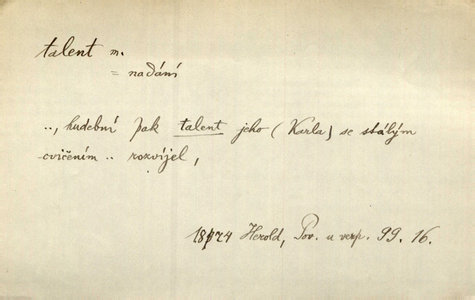 talent m.
= nadání
.., hudební pak talent jeho (Karla) se stálým
cvičením .. rozvíjel,
1874 Herold, Pov. u verp. 99. 16.